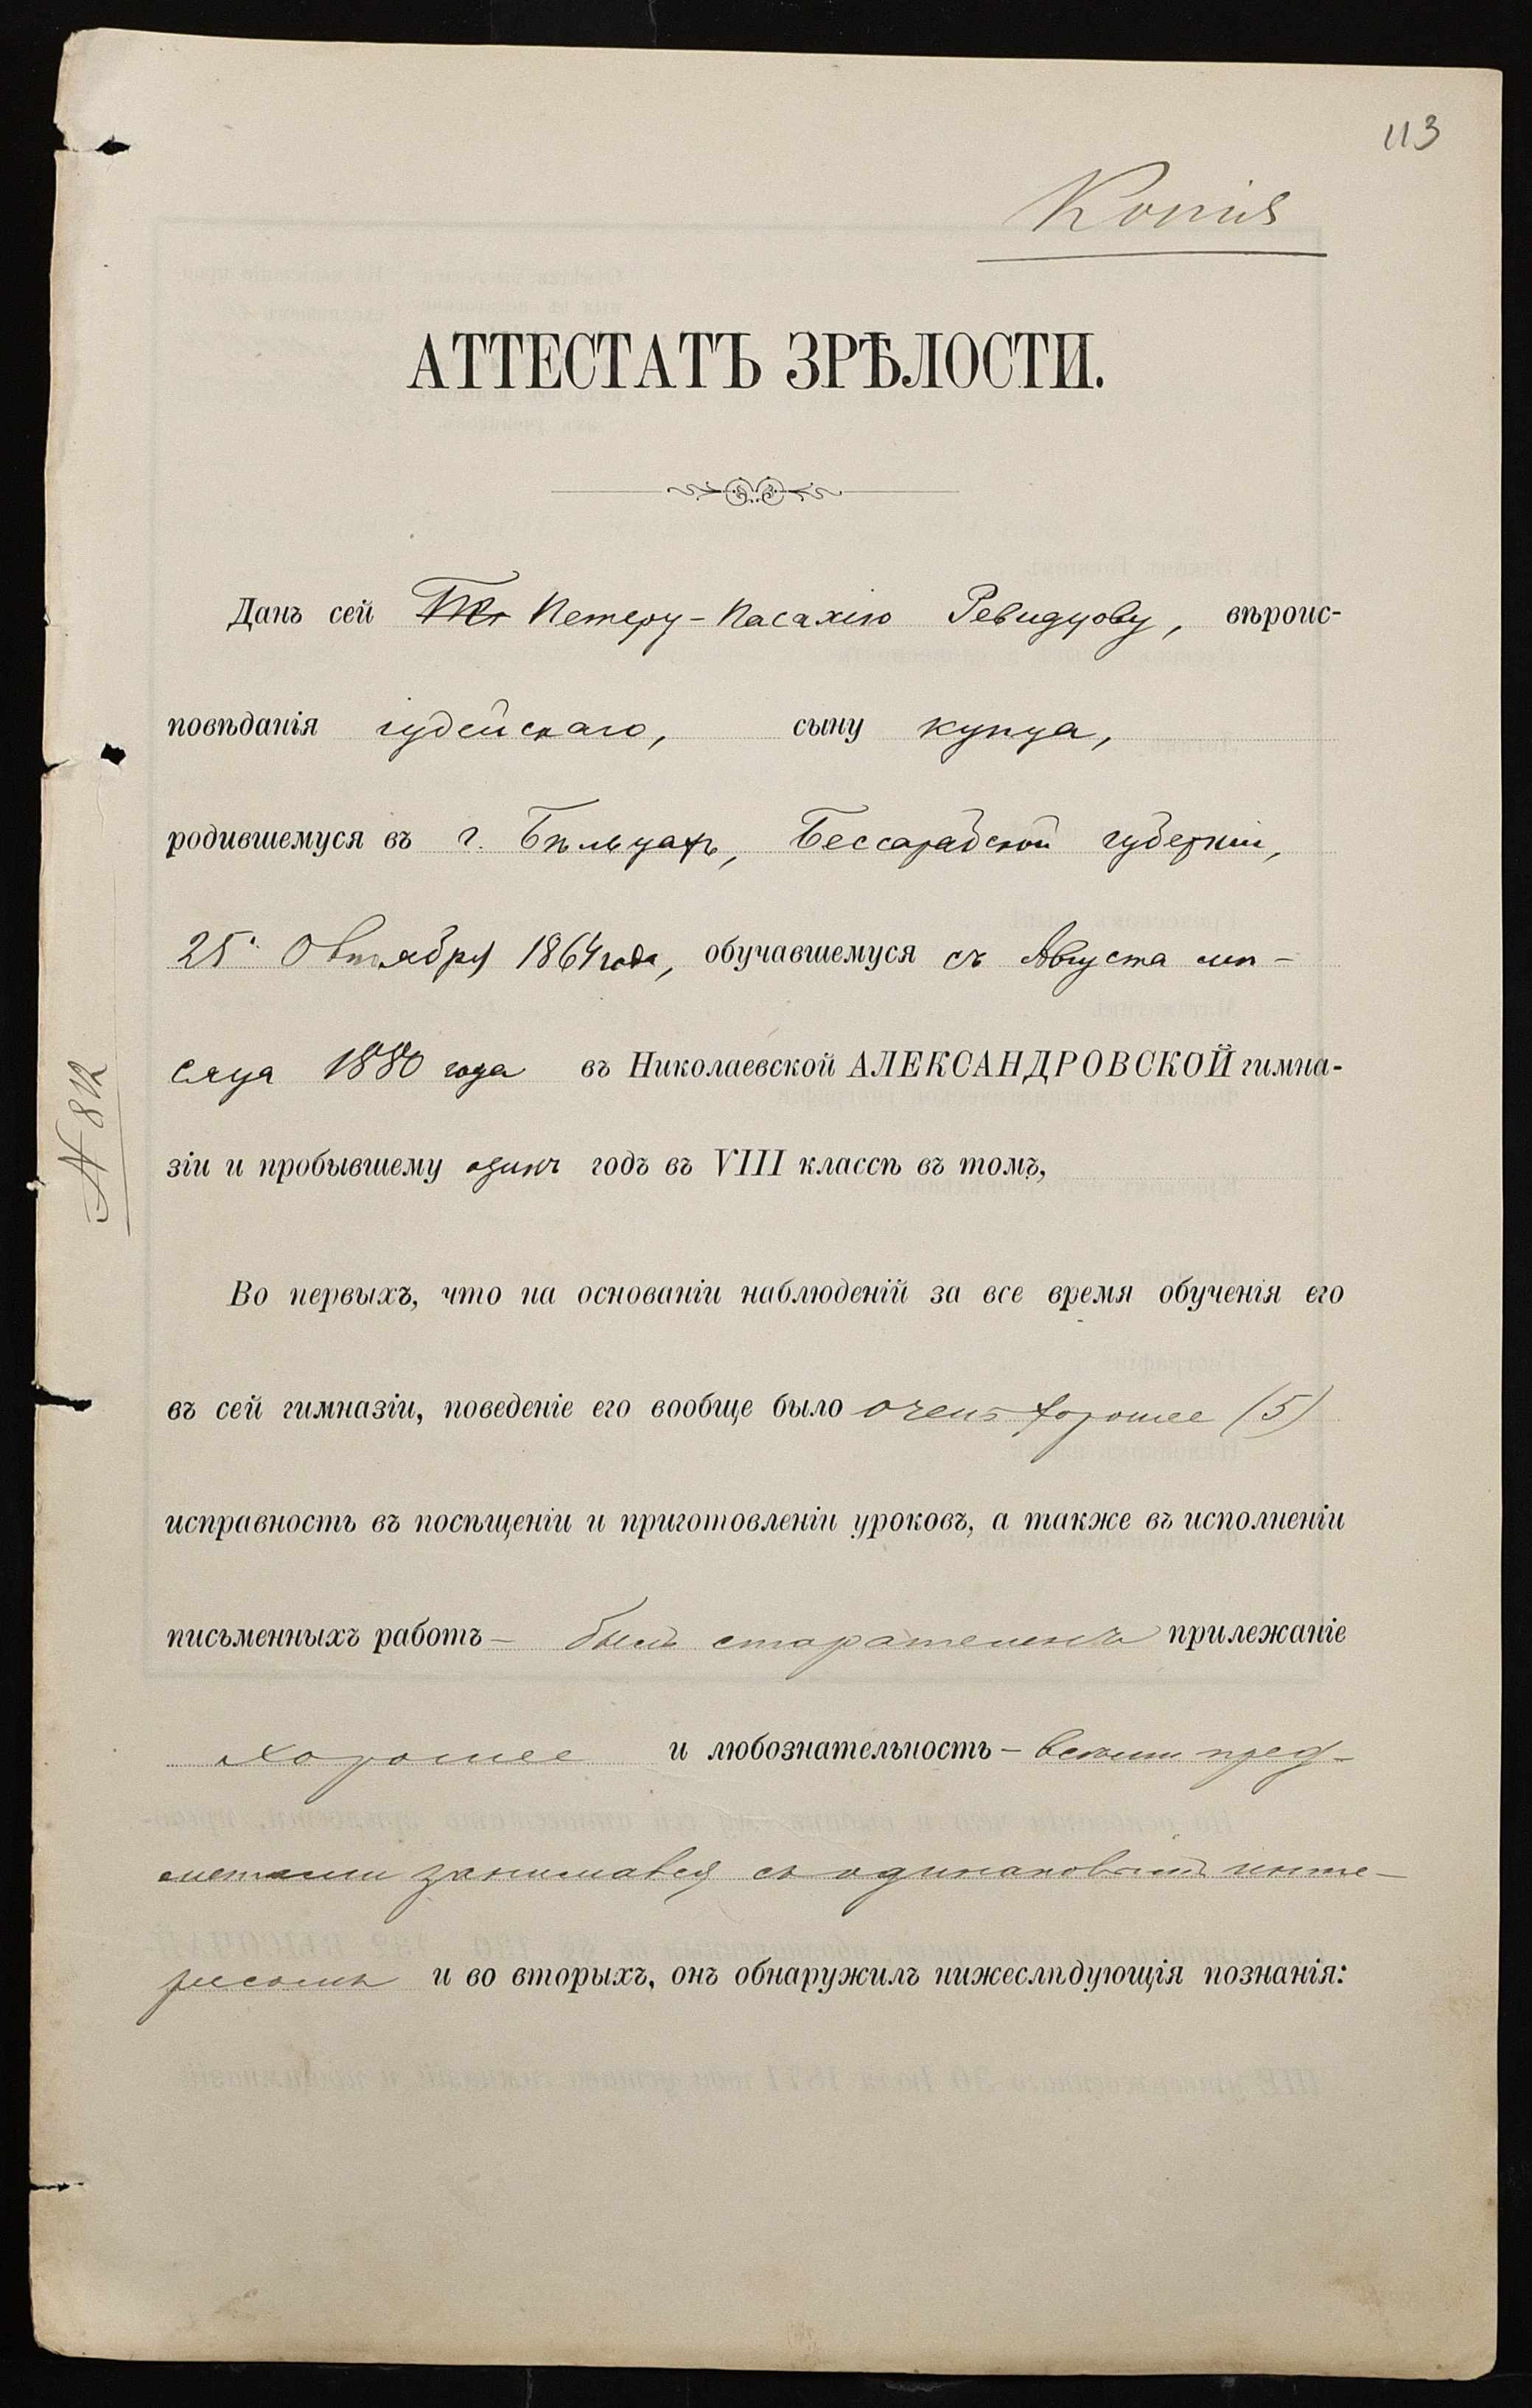 113
Копія
АТТЕСТАТЪ ЗРѢЛОСТИ.
Данъ сей Петеру-Пасахію Ревидцову, вѣроис-
повѣданія іудейскаго, сыну купца,
родившемуся въ г. Бѣльцахъ, Бессарабской губерніи,
25 Октября 1864 года, обучавшемуся съ Августа мѣ-
сяца 1880 года въ Николаевской АЛЕКСАНДРОВСКОЙ гимна-
зіи и пробывшему одинъ годъ въ VIII классѣ въ томъ,
Во первыхъ, что на основаніи наблюденій за все время обученія его
въ сей гимназіи, поведеніе его вообще было очень хорошее (5)
исправность въ посѣщеніи и приготовленіи уроковъ, а также въ исполненіи
письменныхъ работъ – былъ старателенъ прилежаніе
хорошее и любознательность – всѣми пред-
метами занимался съ одинаковымъ инте-
ресомъ и во вторыхъ, онъ обнаружилъ нижеслѣдующія познанія:
№ 812